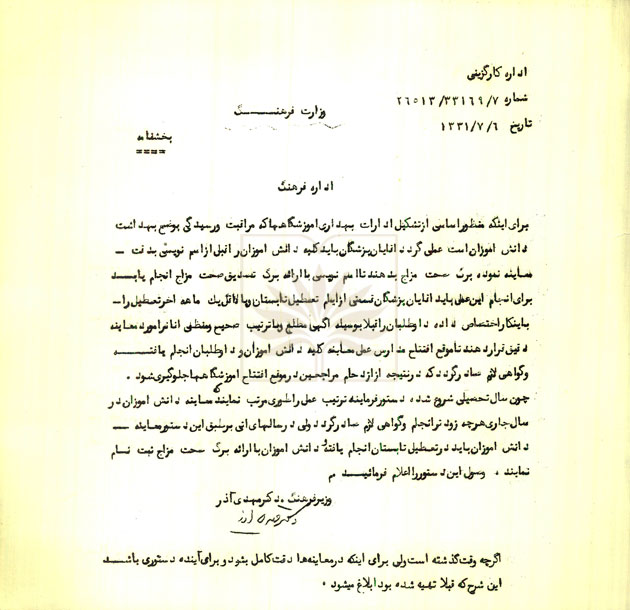 اداره کارگزینی
شماره ۲۶۵۱۳/۳۳۱۶۹/۷
تاریخ ۱۳۳۱/۷/۶
وزارت فرهنگ
بخشنامه
اداره فرهنگ
برای اینکه منظور اساسی از تشکیل ادارات بهداری آموزشگاهها که مراقبت و رسیدگی بوضع بهداشت
دانش آموزان است عملی گردد آقایان پزشگان باید کلیه دانش آموزان را قبل از اسم نویسی بدقت
معاینه نموده برگ صحت مزاج بدهند تا اسم نویسی با ارائه برگ تصدیق صحت مزاج انجام یابد
برای انجام این عمل باید آقایان پزشگان قسمتی از ایام تعطیل تابستان و یا لااقل یک ماهه آخر تعطیل را
باینکار اختصاص داده داوطلبان را قبلا بوسیله آگهی مطلع و با ترتیب صحیح و منظمی آنانرا مورد معاینه
دقیق قرار دهند تا موقع افتتاح مدارس عمل معاینه کلیه دانش آموزان و داوطلبان انجام یافته
و گواهی لازم صادر گردد که در نتیجه از ازدحام مراجعین در موقع افتتاح آموزشگاهها جلوگیری شود .
چون سال تحصیلی شروع شده ، دستور فرمایند ترتیب عمل را طوری مرتب نمایند که معاینه دانش آموزان در
سال جاری هرچه زودتر انجام و گواهی لازم صادر گردد ولی در سالهای آتی بر طبق این دستور معاینه
دانش آموزان باید در تعطیل تابستان انجام یافته و دانش آموزان با ارائه برگ صحت مزاج ثبت نام
نمایند . وصول این دستور را اعلام فرمائید م
وزیر فرهنگ . دکتر مهدی آذر
دکتر مهدی آذر
اگرچه وقت گذشته است ولی برای اینکه در معاینه ها دقت کامل بشود و برای آینده دستوری باشد
این شرح که قبلا تهیه شده بود ابلاغ میشود .